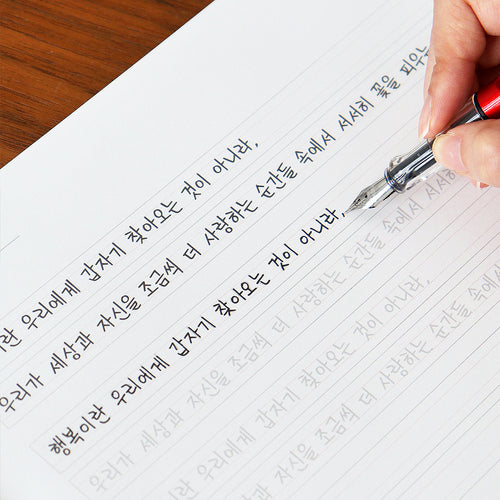 이란 우리에게 갑자기 찾아오는 것이 아니라,
우리가 세상과 자신을 조금씩 더 사랑하는 순간들 속에서 서서히 꽃을 피우는
행복이란 우리에게 갑자기 찾아오는 것이 아니라,
우리가 세상과 자신을 조금씩 더 사랑하는 순간들 속에서 서서히
우리에게 갑자기 찾아오는 것이 아니라,
자신을 조금씩 더 사랑하는 순간들 속에서